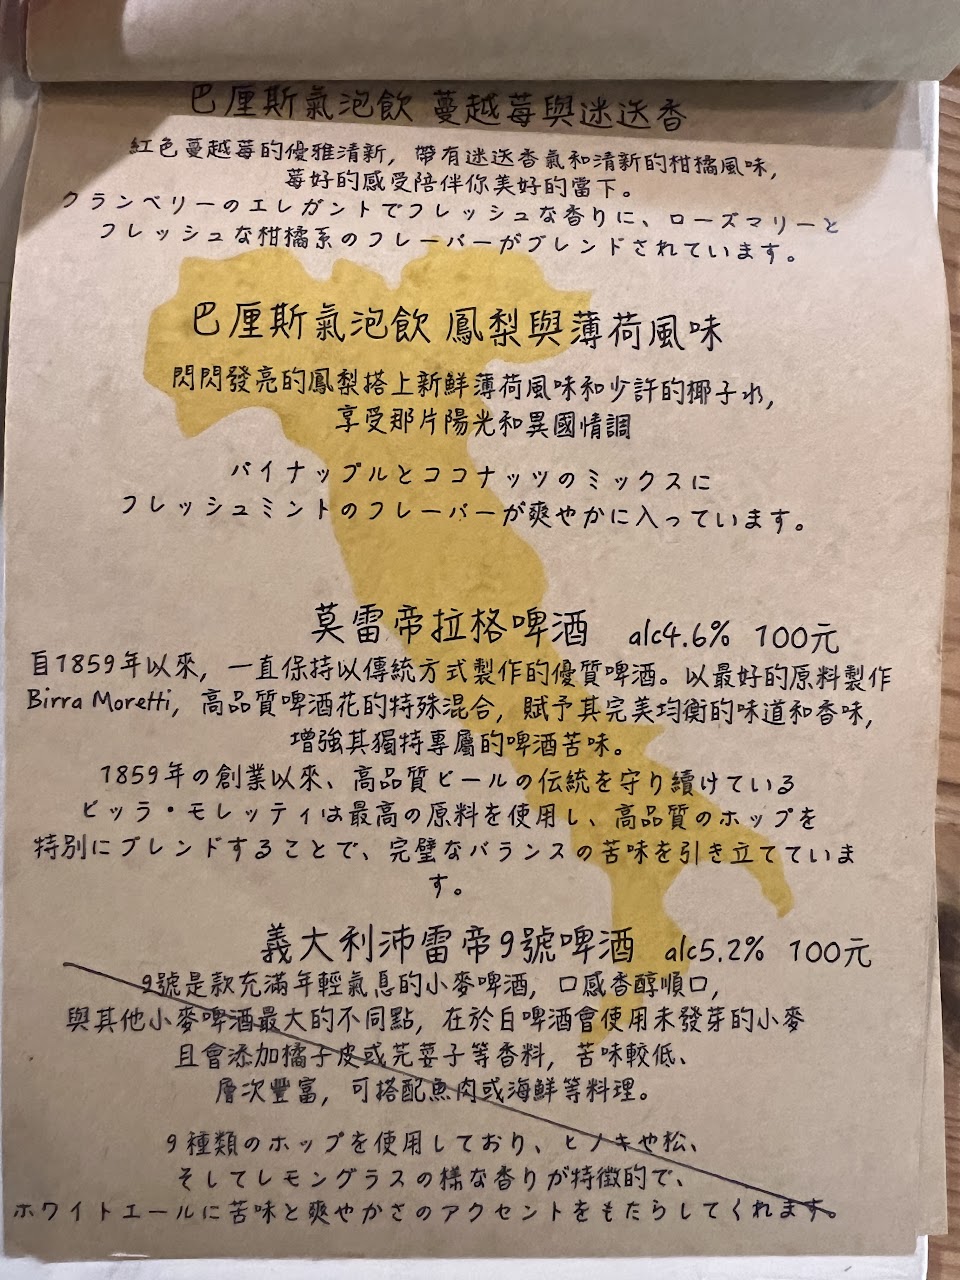 巴厘斯氣泡飲 蔓越莓與迷迭香
紅色蔓越莓的優雅清新，帶有迷迭香氣和清新的柑橘風味，
莓好的感受陪伴你美好的當下。
クランベリーのエレガントでフレッシュな香りに、ローズマリーと
フレッシュな柑橘系のフレーバーがブレンドされています。
巴厘斯氣泡飲 鳳梨與薄荷風味
閃閃發亮的鳳梨搭上新鮮薄荷風味和少許的椰子水，
享受那片陽光和異國情調
パイナップルとココナッツのミックスに
フレッシュミントのフレーバーが爽やかに入っています。
莫雷帝拉格啤酒 alc4.6% 100元
自1859年以來，一直保持以傳統方式製作的優質啤酒。以最好的原料製作
Birra Moretti，高品質啤酒花的特殊混合，賦予其完美均衡的味道和香味，
增強其獨特專屬的啤酒苦味。
1859年の創業以來、高品質ビールの伝統を守り続けている
ビッラ・モレッティは最高の原料を使用し、高品質のホップを
特別にブレンドすることで、完璧なバランスの苦味を引き立てていま
す。
義大利沛雷帝9號啤酒 alc5.2% 100元
9號是款充滿年輕氣息的小麥啤酒，口感香醇順口，
與其他小麥啤酒最大的不同點，在於白啤酒會使用未發芽的小麥
且會添加橘子皮或芫荽子等香料，苦味較低、
層次豐富，可搭配魚肉或海鮮等料理。
9種類のホップを使用しており、ヒノキや松、
そしてレモングラスの様な香りが特徴的で、
ホワイトエールに苦味と爽やかさのアクセントをもたらしてくれます。